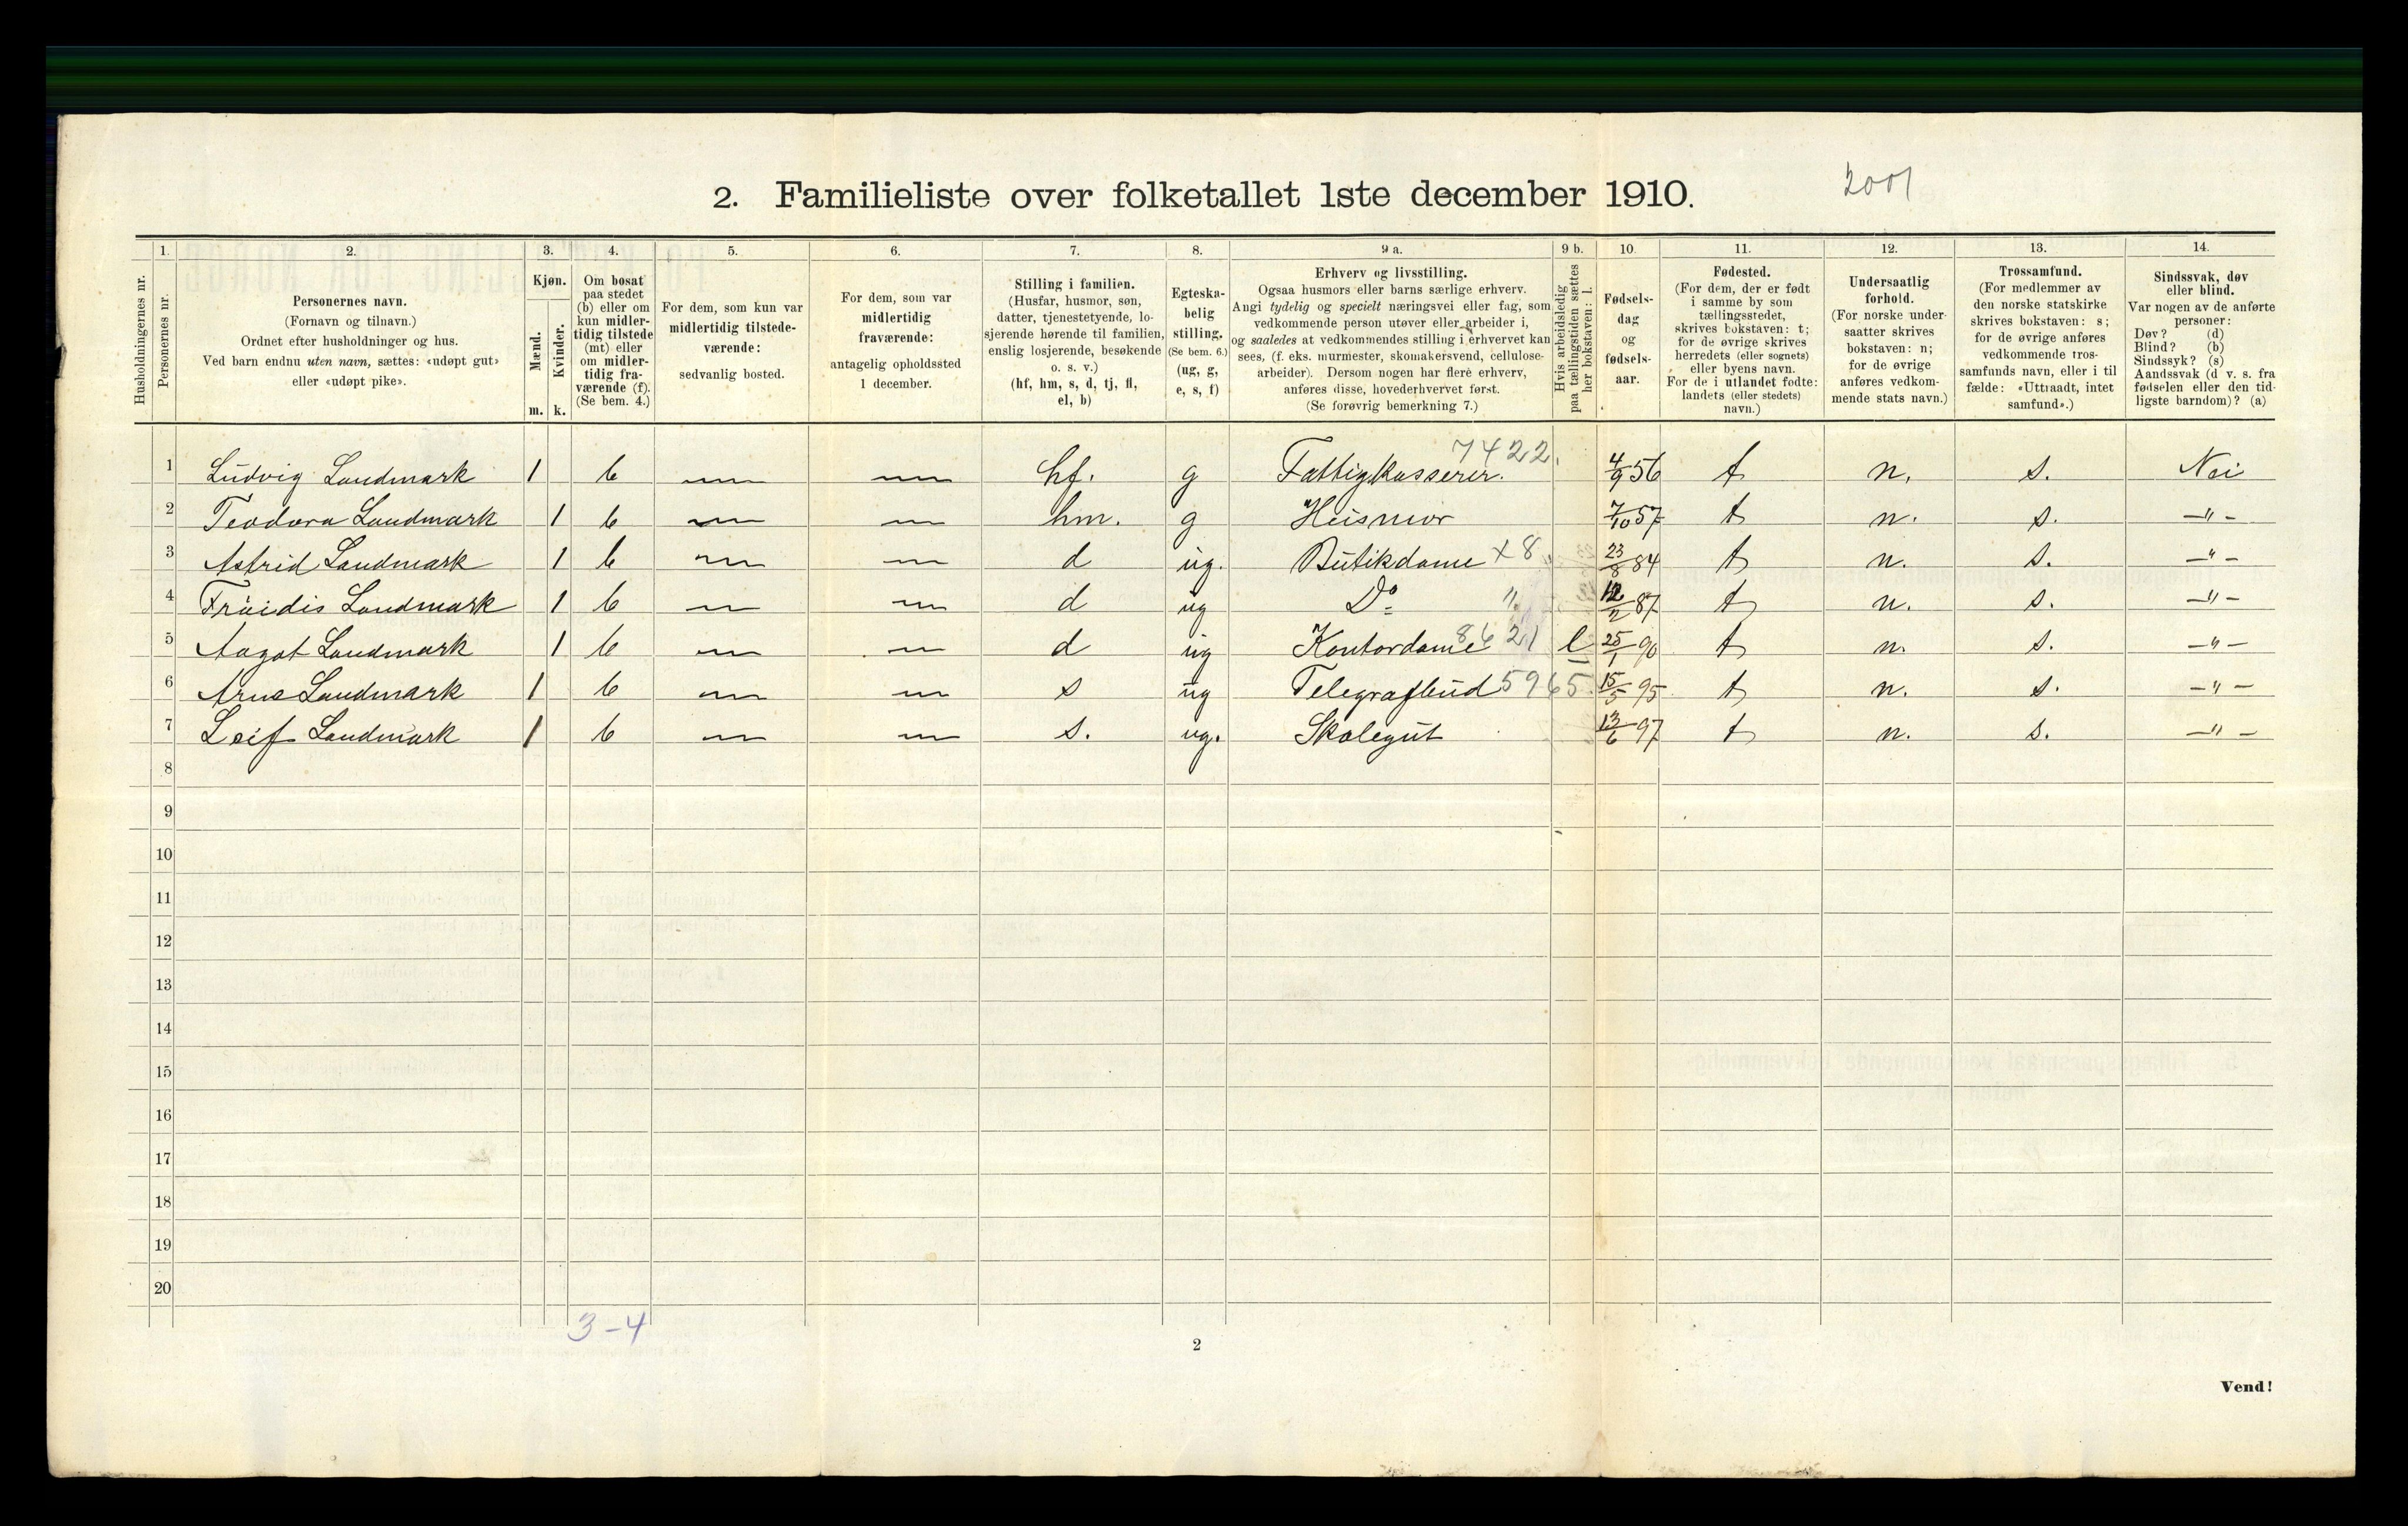 2. Familieliste over folketallet 1ste december 1910.
2001
1. 2. 3. 4. 5. 6. 7. 8. 9 a. 9 b. 10. 11. 12. 13. 14.
Husholdningernes nr.
Personernes nr.
Personernes navn.
(Fornavn og tilnavn.)
Ordnet efter husholdninger og hus.
Ved barn endnu uten navn, sættes: «udøpt gut»
eller «udøpt pike».
Kjøn.
Mænd.
Kvinder.
m. k.
Om bosat
paa stedet
(b) eller om
kun midler-
tidig tilstede
(mt) eller
om midler-
tidig fra-
værende (f).
(Se bem. 4.)
For dem, som kun var
midlertidig tilstede-
værende:
sedvanlig bosted.
For dem, som var
midlertidig
fraværende:
antagelig opholdssted
1 december.
Stilling i familien.
(Husfar, husmor, søn,
datter, tjenestetyende, lo-
sjerende hørende til familien,
enslig losjerende, besøkende
o. s. v.)
(hf, hm, s, d, tj, fl,
el, b)
Egteska-
belig
stilling.
(Se bem. 6.)
(ug, g,
e, s, f)
Erhverv og livsstilling.
Ogsaa husmors eller barns særlige erhverv.
Angi tydelig og specielt næringsvei eller fag, som
vedkommende person utøver eller arbeider i,
og saaledes at vedkommendes stilling i erhvervet kan
sees, (f. eks. murmester, skomakersvend, cellulose-
arbeider). Dersom nogen har flere erhverv,
anføres disse, hovederhvervet først.
(Se forøvrig bemerkning 7.)
Hvis arbeidsledig
paa tællingstiden sættes
her bokstaven: l.
Fødsels-
dag
og
fødsels-
aar.
Fødested.
(For dem, der er født
i samme by som
tællingsstedet,
skrives bokstaven: t;
for de øvrige skrives
herredets (eller sognets)
eller byens navn.
For de i utlandet fødte:
landets (eller stedets)
navn.)
Undersaatlig
forhold.
(For norske under-
saatter skrives
bokstaven: n;
for de øvrige
anføres vedkom-
mende stats navn.)
Trossamfund.
(For medlemmer av
den norske statskirke
skrives bokstaven: s;
for de øvrige anføres
vedkommende tros-
samfunds navn, eller i til
fælde: «Uttraadt, intet
samfund».)
Sindssvak, døv
eller blind.
Var nogen av de anførte
personer:
Døv? (d)
Blind? (b)
Sindssyk? (s)
Aandssvak (d v. s. fra
fødselen eller den tid-
ligste barndom)? (a)
7422.
1 Ludvig Landmark 1 b — — hf. g Fattigkasserer. 4/9 56 t n. s. Nei
2 Teodora Landmark 1 b — — hm. g Husmor 7/10 57 t n. s. —"—
3 Astrid Landmark 1 b — — d ug. Butikdame x8 23/8 84 t n. s. —"—
4 Fröidis Landmark 1 b — — d ug Do " 12/2 87 t n. s. —"—
5 Aagot Landmark 1 b — — d ug Kontordame 8621 l 25/1 90 t n. s. —"—
6 Arne Landmark 1 b — — s ug Telegrafbud 5965. 15/5 95 t n. s. —"—
7 Leif Landmark 1 b — — s. ug. Skolegut 13/6 97 t n. s. —"—
8
9
10
11
12
13
14
15
16
17
18
19
20
3-4
2
Vend!